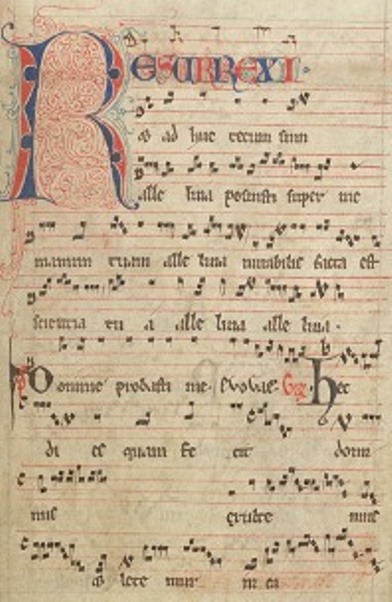 RESURREXI.
& ad huc tecum sum
alle luia posuisti super me
manum tuam alle luia mirabilis facta est
scientia tu a alle luia alle luia.
Domine probasti me. Evovae. Hec
di es quam fe cit domi
nus
& lete mur in ea